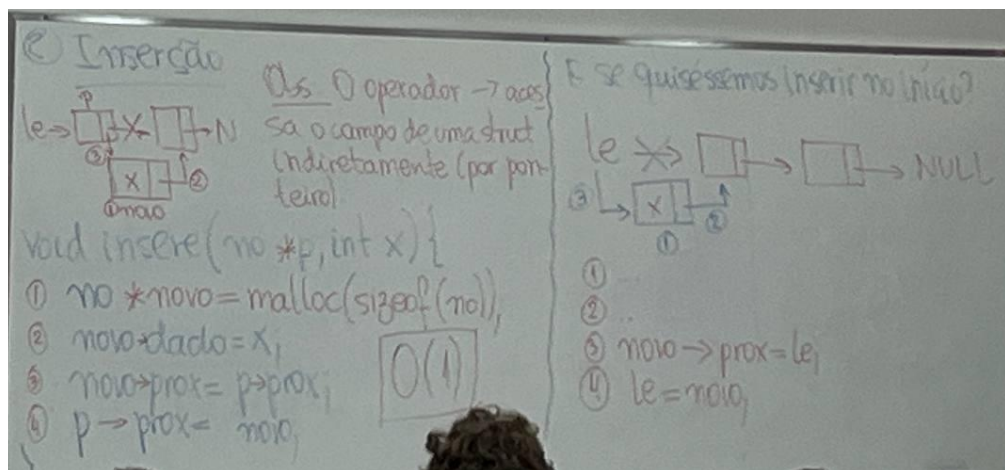 ② Inserção
Obs O operador → aces
sa o campo de uma struct
indiretamente (por pon-
teiro)
p
le → N
③
x ②
① novo
void insere(no *p, int x){
① no *novo = malloc(sizeof(no));
② novo→dado = x;
③ novo→prox = p→prox;
④ p → prox = novo;
O(1)
E se quiséssemos inserir no início?
le → NULL
③ x ②
①
① ...
② ...
③ novo → prox = le;
④ le = novo;